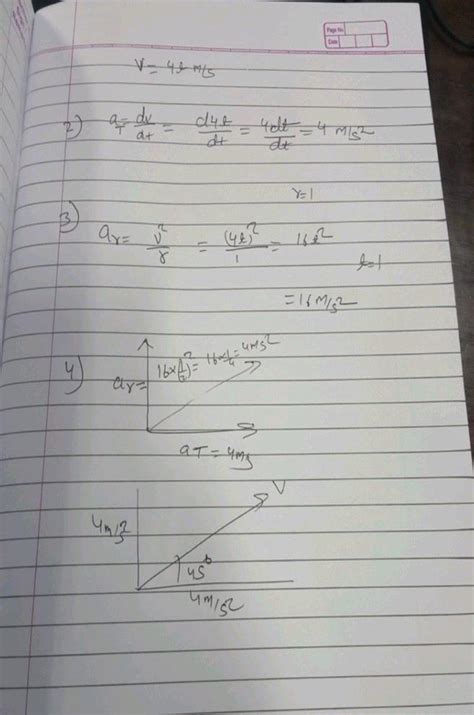 Page No.
Date
V = 4t m/s
2) a_T = dv/dt = d4t/dt = 4dt/dt = 4 m/s²
r=1
3) a_r = v²/r = (4t)²/1 = 16t²
t=1
= 16 m/s²
4) a_r = 16×(1/2)² = 16×1/4 = 4m/s²
a_T = 4m/s
V
4m/s²
45°
4m/s²